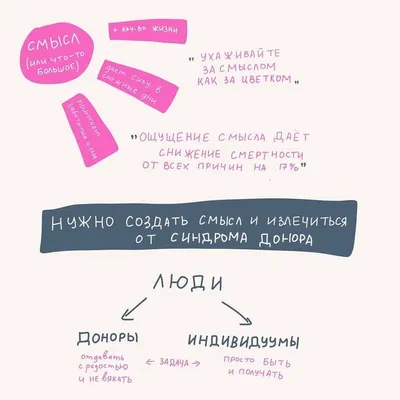 СМЫСЛ
(или что-то
большое)
+ кач-во жизни
даёт силу в
сложные дни
помогает
заботиться о
„УХАЖИВАЙТЕ
ЗА СМЫСЛОМ
КАК ЗА ЦВЕТКОМ"
„ОЩУЩЕНИЕ СМЫСЛА ДАЁТ
СНИЖЕНИЕ СМЕРТНОСТИ
ОТ ВСЕХ ПРИЧИН НА 17%"
НУЖНО СОЗДАТЬ СМЫСЛ И ИЗЛЕЧИТЬСЯ
ОТ СИНДРОМА ДОНОРА
ЛЮДИ
ДОНОРЫ
ИНДИВИДУУМЫ
отдавать
с радостью
и не вякать
← ЗАДАЧА →
просто быть
и получать